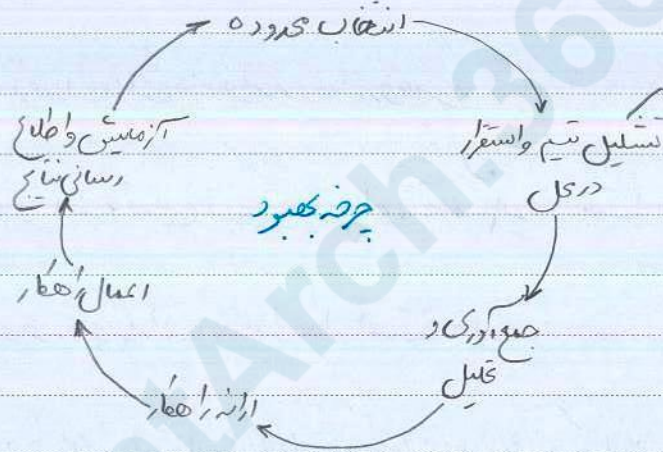 انتخاب محدوده
تشکیل تیم و استقرار
در محل
جمع آوری و
تحلیل
ارائه راهکار
اعمال راهکار
آزمایش و اطلاع
رسانی نتایج
چرخه بهبود